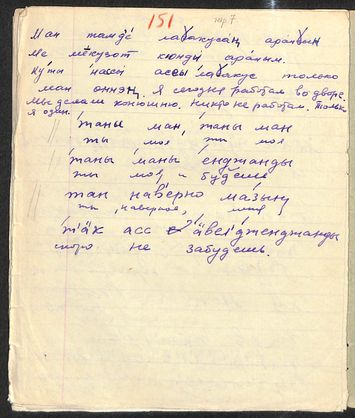 151 стр 7
Ман тамдё лабакусаң арандын
Ме мёкузот кюнды арандым.
Куты нассй ассы лабакус только
ман оннэң. Я сегодня работал во дворе.
Мы делали конюшню. Никто не работал. Только
я один.
таны ман, таны ман
ты моя, ты моя
таны маны енджанды
ты моя и будешь
тан наверно мазын
ты, наверное, меня
так асс авелдженджанды
скоро не забудешь.